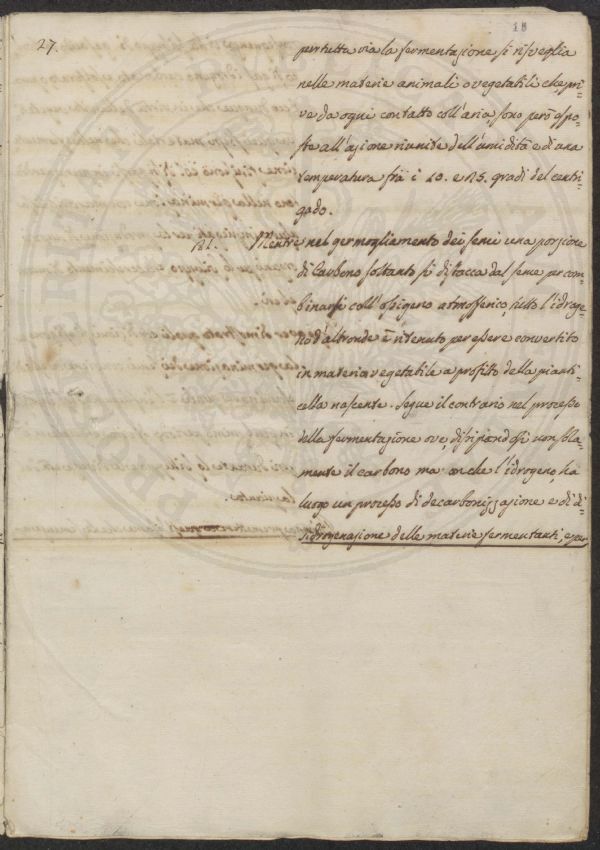 27.
18
pur tutta via la fermentazione si risveglia
nelle materie animali o vegetabili che pri-
ve da ogni contatto coll'aria sono però espo-
ste all'azione riunite dell'umidità e di una
temperatura fra i 10. e 25. gradi del centi-
gado.
Mentre nel germogliamento dei semi una porzione
di Carbono soltanto si distacca dal seme per com-
binarsi coll'ossigeno atmosferico, tutto l'idroge-
no d'altronde è ritenuto per essere convertito
in materia vegetabile a profitto della pianti-
cella nascente. Segue il contrario nel processo
della fermentazione ove, dissipandosi non sola-
mente il carbono ma anche l'idrogeno, ha
luogo un processo di decarbonizzazione e di di-
sidrogenazione delle materie fermentanti, e